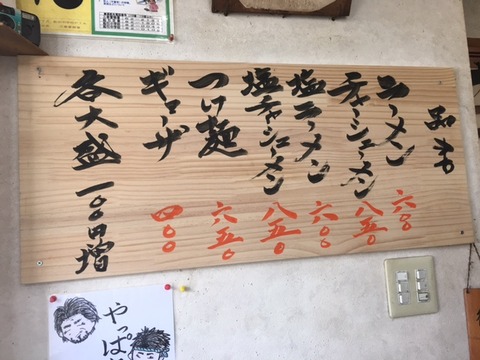 品書
ラーメン 六〇〇
チャーシューメン 八五〇
塩ラーメン 六〇〇
塩チャーシューメン 八五〇
つけ麺 六五〇
ギョーザ 四〇〇
各大盛 一〇〇円増
やっぱ